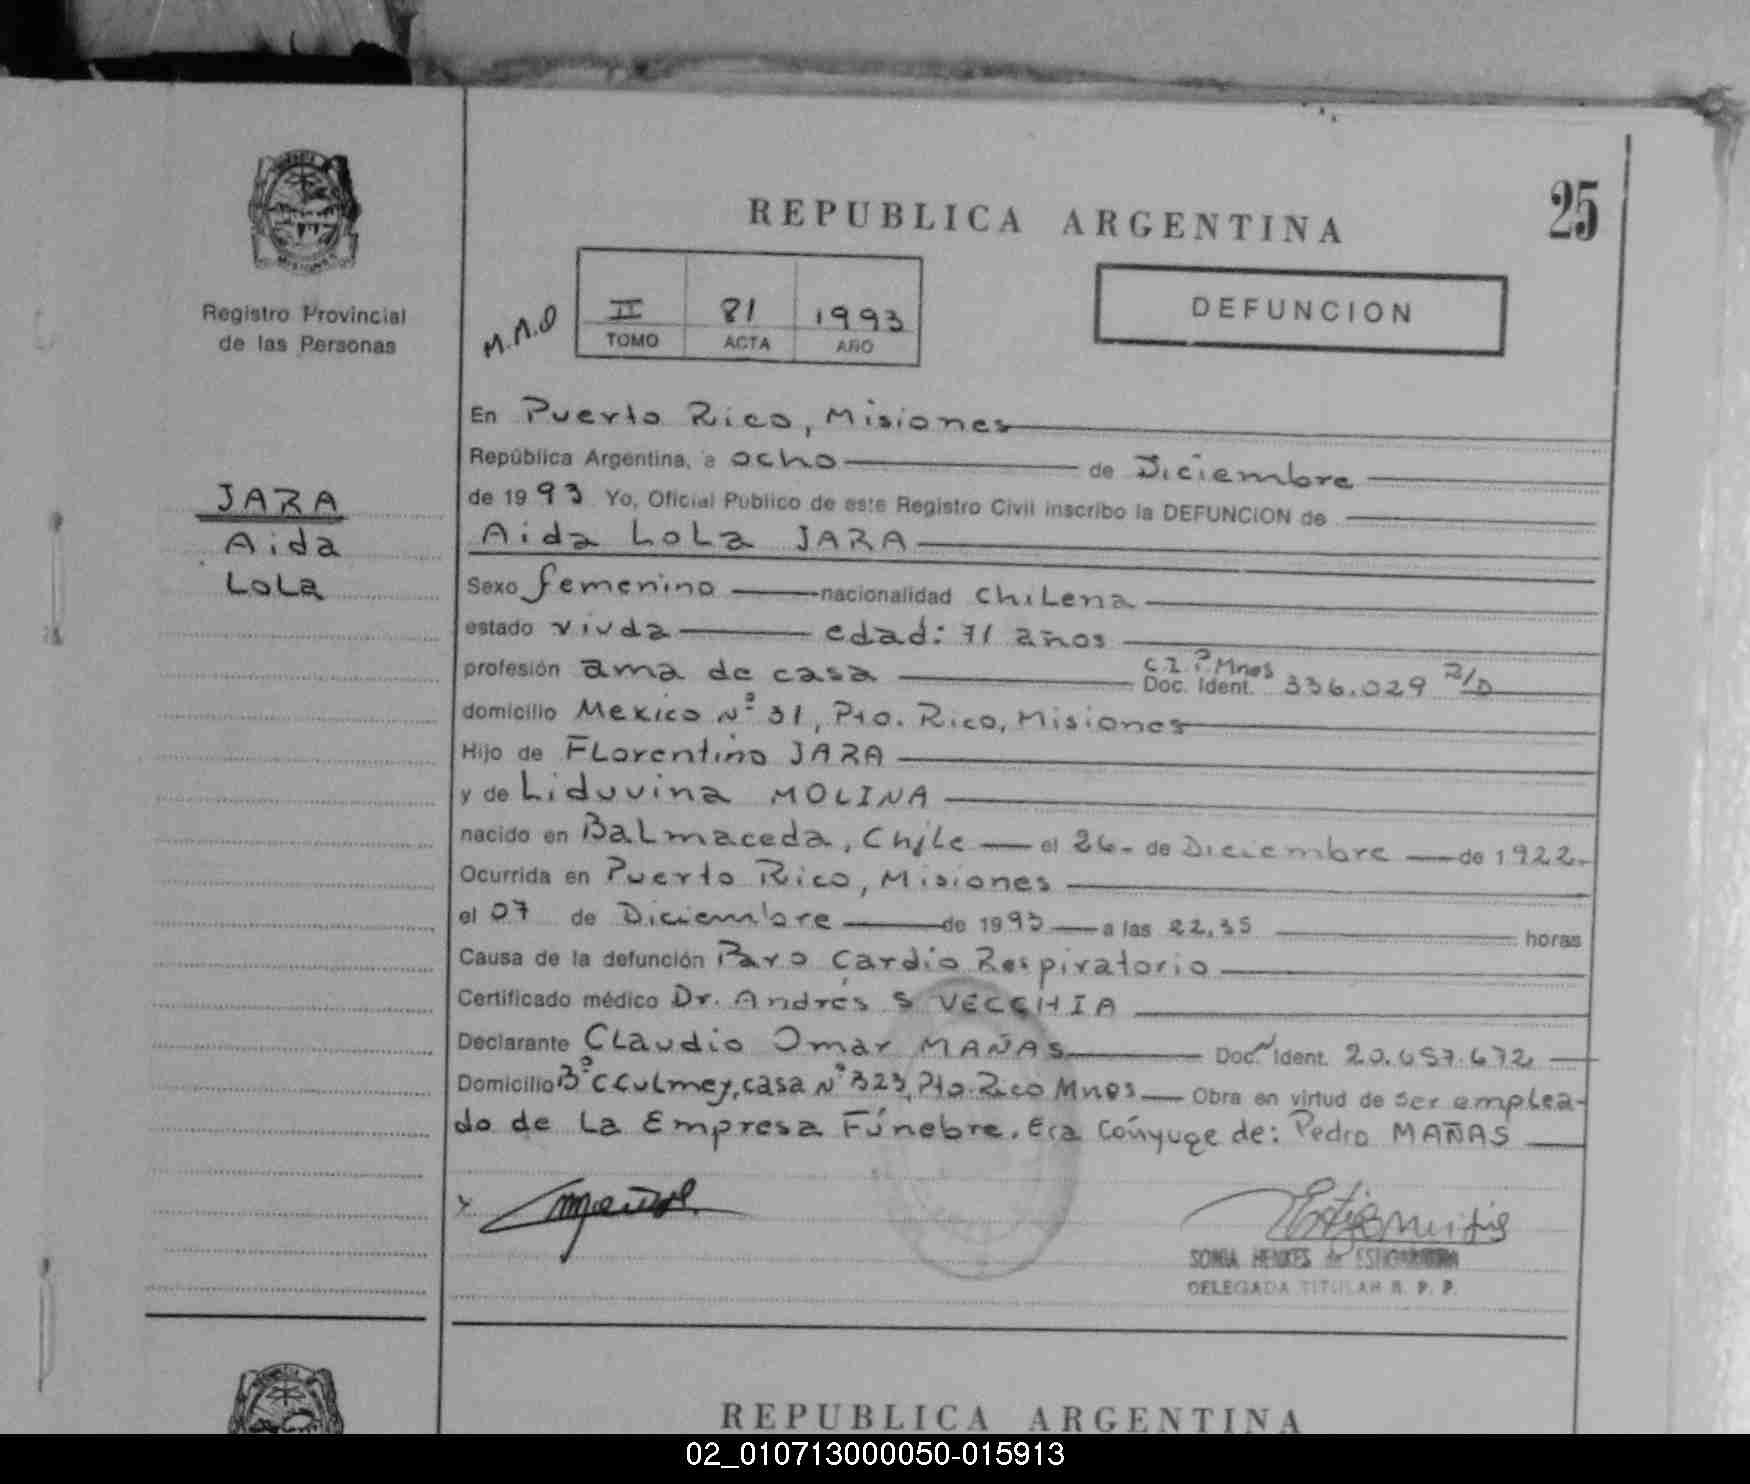 25
REPUBLICA ARGENTINA
Registro Provincial
de las Personas
M.A.O
II 81 1993
TOMO ACTA AÑO
DEFUNCION
JARA
Aida
Lola
En Puerto Rico, Misiones
República Argentina, a ocho de Diciembre
de 1993 Yo, Oficial Publico de este Registro Civil inscribo la DEFUNCION de
Aida Lola JARA
Sexo femenino nacionalidad chilena
estado viuda edad: 71 años
profesión ama de casa C.I. Pº Mnes Doc. Ident. 336.029
domicilio Mexico Nº 31, Pto. Rico, Misiones
Hijo de Florentino JARA
y de Liduvina MOLINA
nacido en Balmaceda, Chile el 26 de Diciembre de 1922.
Ocurrida en Puerto Rico, Misiones
el 07 de Diciembre de 1993 a las 22,35 horas
Causa de la defunción Paro Cardio Respiratorio
Certificado médico Dr. Andrés S VECCHIA
Declarante Claudio Omar MAÑAS Doc. Ident. 20.657.672
Domicilio Bº C Culmey, casa Nº 323, Pto. Rico Mnes Obra en virtud de ser emplea-
do de la Empresa Fúnebre. Era Cónyuge de: Pedro MAÑAS
SONIA HENXES de
DELEGADA TITULAR R. P. P.
REPUBLICA ARGENTINA
02_010713000050-015913